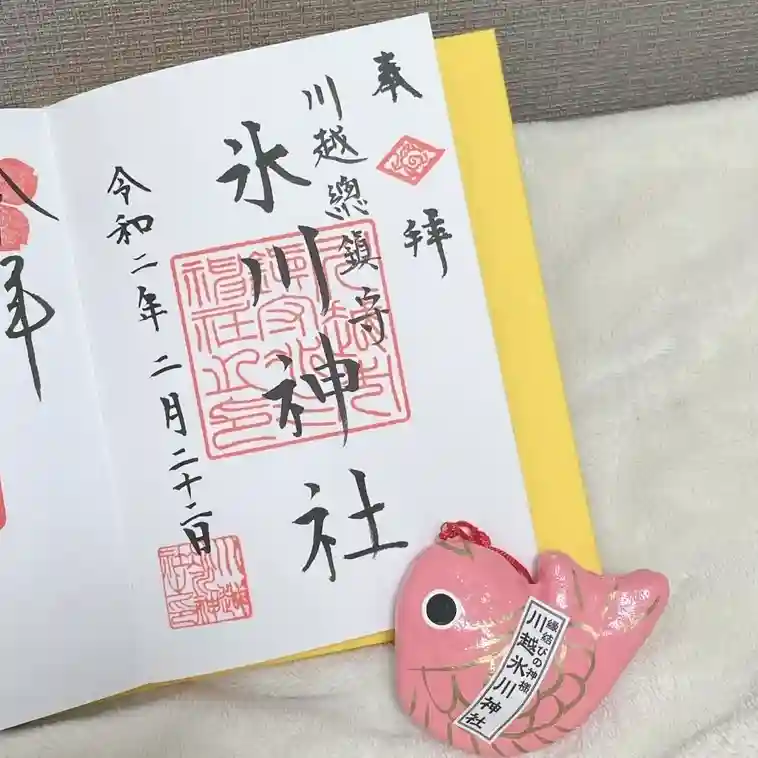 奉拝
川越總鎮守
氷川神社
令和二年二月二十二日
縁結びの神様
川越氷川神社
拝